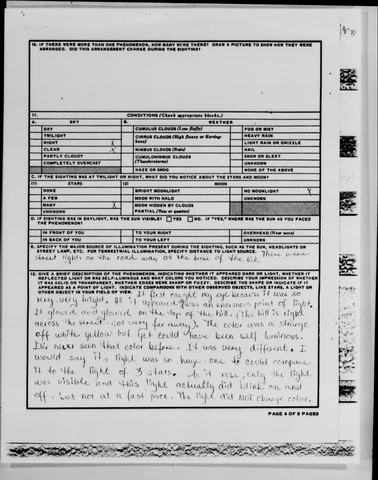 10. IF THERE WERE MORE THAN ONE PHENOMENON, HOW MANY WERE THERE? DRAW A PICTURE TO SHOW HOW THEY WERE
ARRANGED. DID THIS ARRANGEMENT CHANGE DURING THE SIGHTING?
11. CONDITIONS (Check appropriate blocks.)
A. SKY B. WEATHER
DAY CUMULUS CLOUDS (Low fluffy) FOG OR MIST
TWILIGHT CIRRUS CLOUDS (High fleecy or Herring-bone) HEAVY RAIN
NIGHT X LIGHT RAIN OR DRIZZLE
CLEAR X NIMBUS CLOUDS (Rain) HAIL
PARTLY CLOUDY CUMULONIMBUS CLOUDS (Thunderstorms) SNOW OR SLEET
COMPLETELY OVERCAST UNKNOWN
HAZE OR SMOG NONE OF THE ABOVE
C. IF THE SIGHTING WAS AT TWILIGHT OR NIGHT, WHAT DID YOU NOTICE ABOUT THE STARS AND MOON?
(1) STARS (2) MOON
NONE BRIGHT MOONLIGHT NO MOONLIGHT X
A FEW MOON WITH HALO UNKNOWN
MANY X MOON HIDDEN BY CLOUDS
UNKNOWN PARTIAL (New or quarter)
D. IF SIGHTING WAS IN DAYLIGHT, WAS THE SUN VISIBLE? YES NO. IF "YES," WHERE WAS THE SUN AS YOU FACED
THE PHENOMENON?
IN FRONT OF YOU TO YOUR RIGHT OVERHEAD (Near noon)
IN BACK OF YOU TO YOUR LEFT UNKNOWN
E. SPECIFY THE MAJOR SOURCE OF ILLUMINATION PRESENT DURING THE SIGHTING, SUCH AS THE SUN, HEADLIGHTS OR
STREET LAMP, ETC. FOR TERRESTRIAL ILLUMINATION, SPECIFY DISTANCE TO LIGHT SOURCE. There were
street lights on the road way at the base of the hill.
12. GIVE A BRIEF DESCRIPTION OF THE PHENOMENON, INDICATING WHETHER IT APPEARED DARK OR LIGHT, WHETHER IT
REFLECTED LIGHT OR WAS SELF-LUMINOUS AND WHAT COLORS YOU NOTICED. DESCRIBE YOUR IMPRESSION OF WHETHER
IT WAS SOLID OR TRANSPARENT, WHETHER EDGES WERE SHARP OR FUZZY. DESCRIBE THE SHAPE OR INDICATE IF IT
APPEARED AS A POINT OF LIGHT. INDICATE COMPARISONS WITH OTHER OBSERVED OBJECTS, LIKE STARS, A LIGHT OR
OTHER OBJECT IN YOUR FIELD OF VIEW. It first caught my eye because it was so
very, very bright. All it appeared was an enormous point of light.
It glowed and glowed on the top of the hill. (The hill is right
across the street - not very far away). The color was a strange
off white yellow but yet could have been self luminous.
I've never seen that color before. It was very different. I
would say its light was so huge one could compare
it to the light of 3 stars. As it rose, only the light
was visible and this light actually did blink on and
off, but not at a fast pace. The light did NOT change color.
PAGE 4 OF 8 PAGES